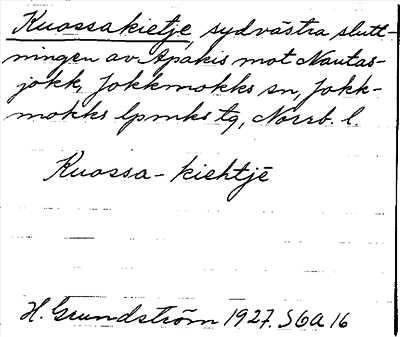 Kuossakietje, sydvästra slutt-
ningen av Apakis mot Nautas-
jokk, Jokkmokks sn, Jokk-
mokks lpmks tg, Norrb. l.
Kuossa-kiehtjē
H. Grundström 1927. SOA 16